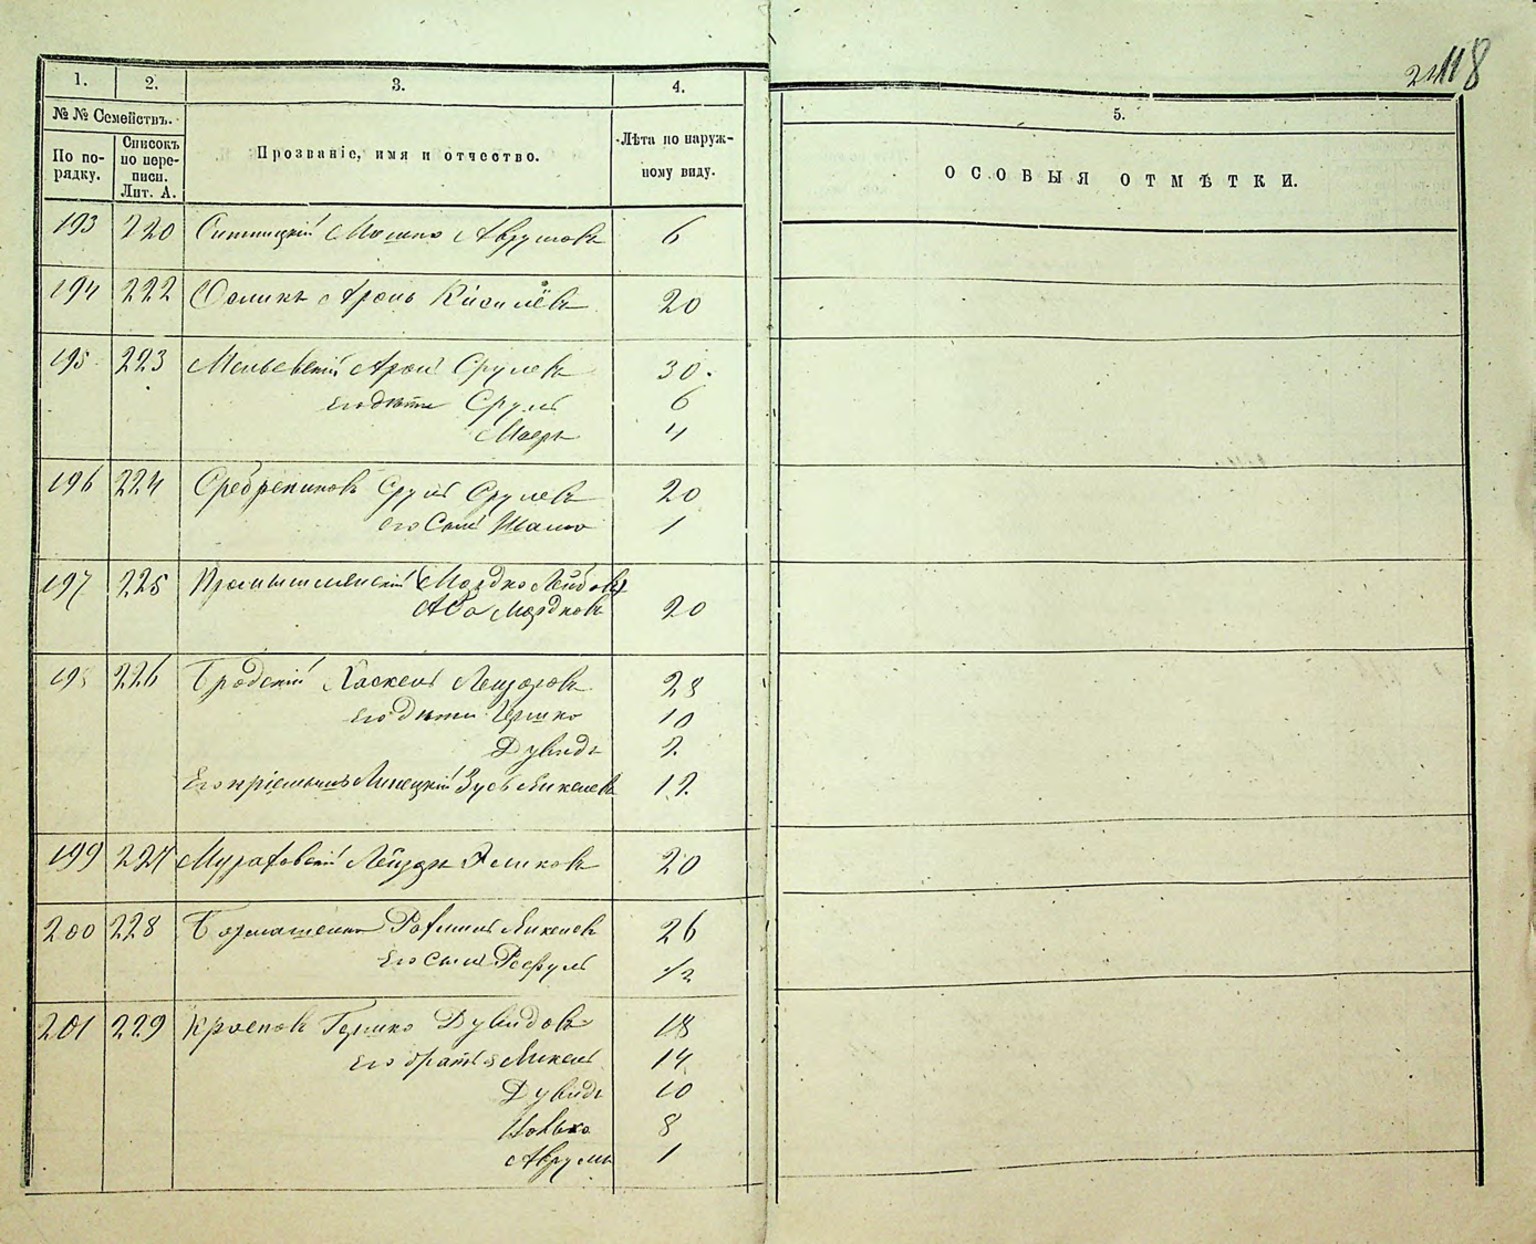 118
1.
2.
3.
4.
5.
№ № Семействъ.
По по-
рядку.
Списокъ
по пере-
писи.
Лит. А.
Прозваніе, имя и отчество.
Лѣта по наруж-
ному виду.
ОСОБЫЯ ОТМѢТКИ.
193 220 Ситницкій Мошко Аврумовъ 6
194 222 Аронъ 20
195 223 Аронъ Срулевъ 30
его дѣти Сруль 6
Маеръ 4
196 224 Сребрениковъ Сруль Срулевъ 20
его Сынъ 1
197 225 Промышлянскій (Мордко Лейбовъ)
Аба Мордковъ 20
198 226 Бродскій Хаскель Лейзоровъ 28
его дѣти Гершко 10
Дувидъ 2
Его пріемышъ Липецкій Зусь Михелевъ 12
199 227 Мурафовскій Лейзеръ 20
200 228 Рафаилъ Михелевъ 26
Его сынъ 1/2
201 229 Красновъ Гершко Дувидовъ 18
Его братья Михель 14
Дувидъ 10
8
Аврумъ 1